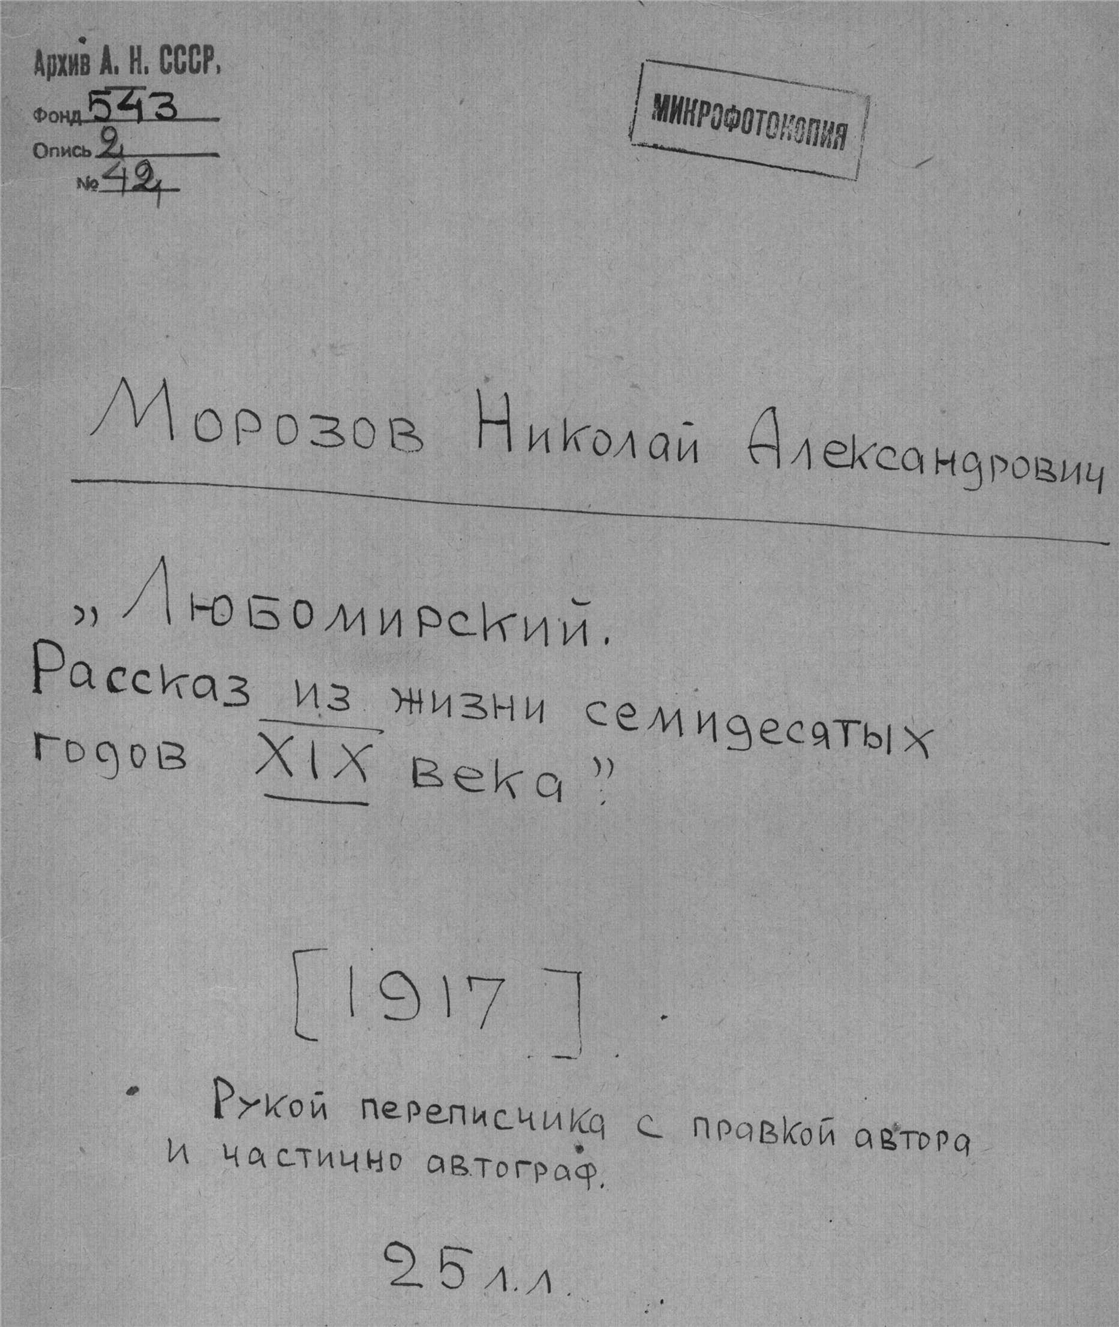 Архив А. Н. СССР.
Фонд 543
Опись 2
№ 42
МИКРОФОТОКОПИЯ
Морозов Николай Александрович
„Любомирский.
Рассказ из жизни семидесятых
годов XIX века”
[1917]
Рукой переписчика с правкой автора
и частично автограф.
25 л.л.